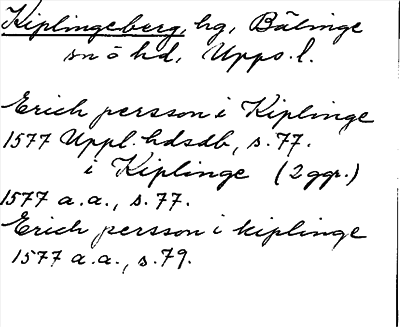 Kiplingeberg, hg, Bälinge
sn o hd, Upps. l.
Erich persson i Kiplinge
1577 Uppl. hdsdb, s. 77.
i Kiplinge (2 ggr.)
1577 a.a., s. 77.
Erich persson i kiplinge
1577 a.a., s. 79.